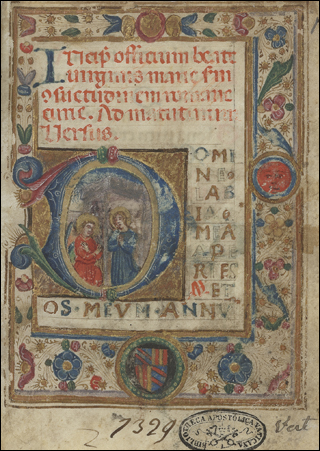 INcip officium beate
uirginis marie sm
9suetudinem romane
curie. Ad matutinum
Versus.
D
OMI
NE
LAB
IA
MEA
APE
RIES
ET
OS·MEVM·ANNV
7329
BIBLIOTHECA APOSTOLICA VATICANA
Vat